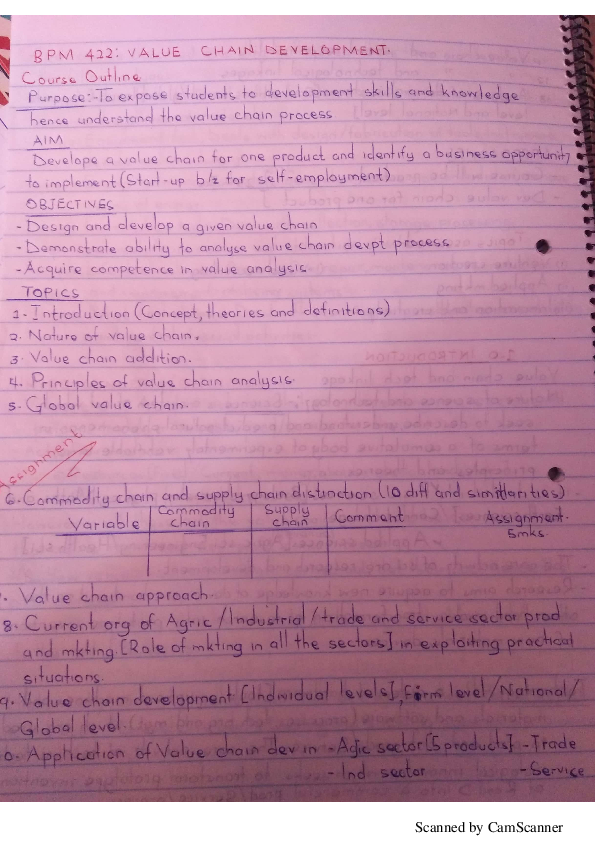 BPM 422: VALUE CHAIN DEVELOPMENT.
Course Outline
Purpose:-To expose students to development skills and knowledge
hence understand the value chain process
AIM
Develope a value chain for one product and identify a business opportunity
to implement (Start-up b/z for self-employment)
OBJECTIVES
- Design and develop a given value chain
- Demonstrate ability to analyse value chain devpt process
- Acquire competence in value analysis
TOPICS
1. Introduction (Concept, theories and definitions)
2. Nature of value chain.
3. Value chain addition.
4. Principles of value chain analysis.
5. Global value chain.
Assignment
6. Commodity chain and supply chain distinction (10 diff and similarities)
Variable Commodity chain Supply chain Comment Assignment. 5mks.
. Value chain approach.
8. Current org of Agric/Industrial/trade and service sector prod
and mkting. [Role of mkting in all the sectors] in exploiting practical
situations.
9. Value chain development [Individual levels], Firm level/National/
Global level.
0. Application of Value chain dev in - Agic sector [5 products] - Trade
- Ind sector - Service
Scanned by CamScanner